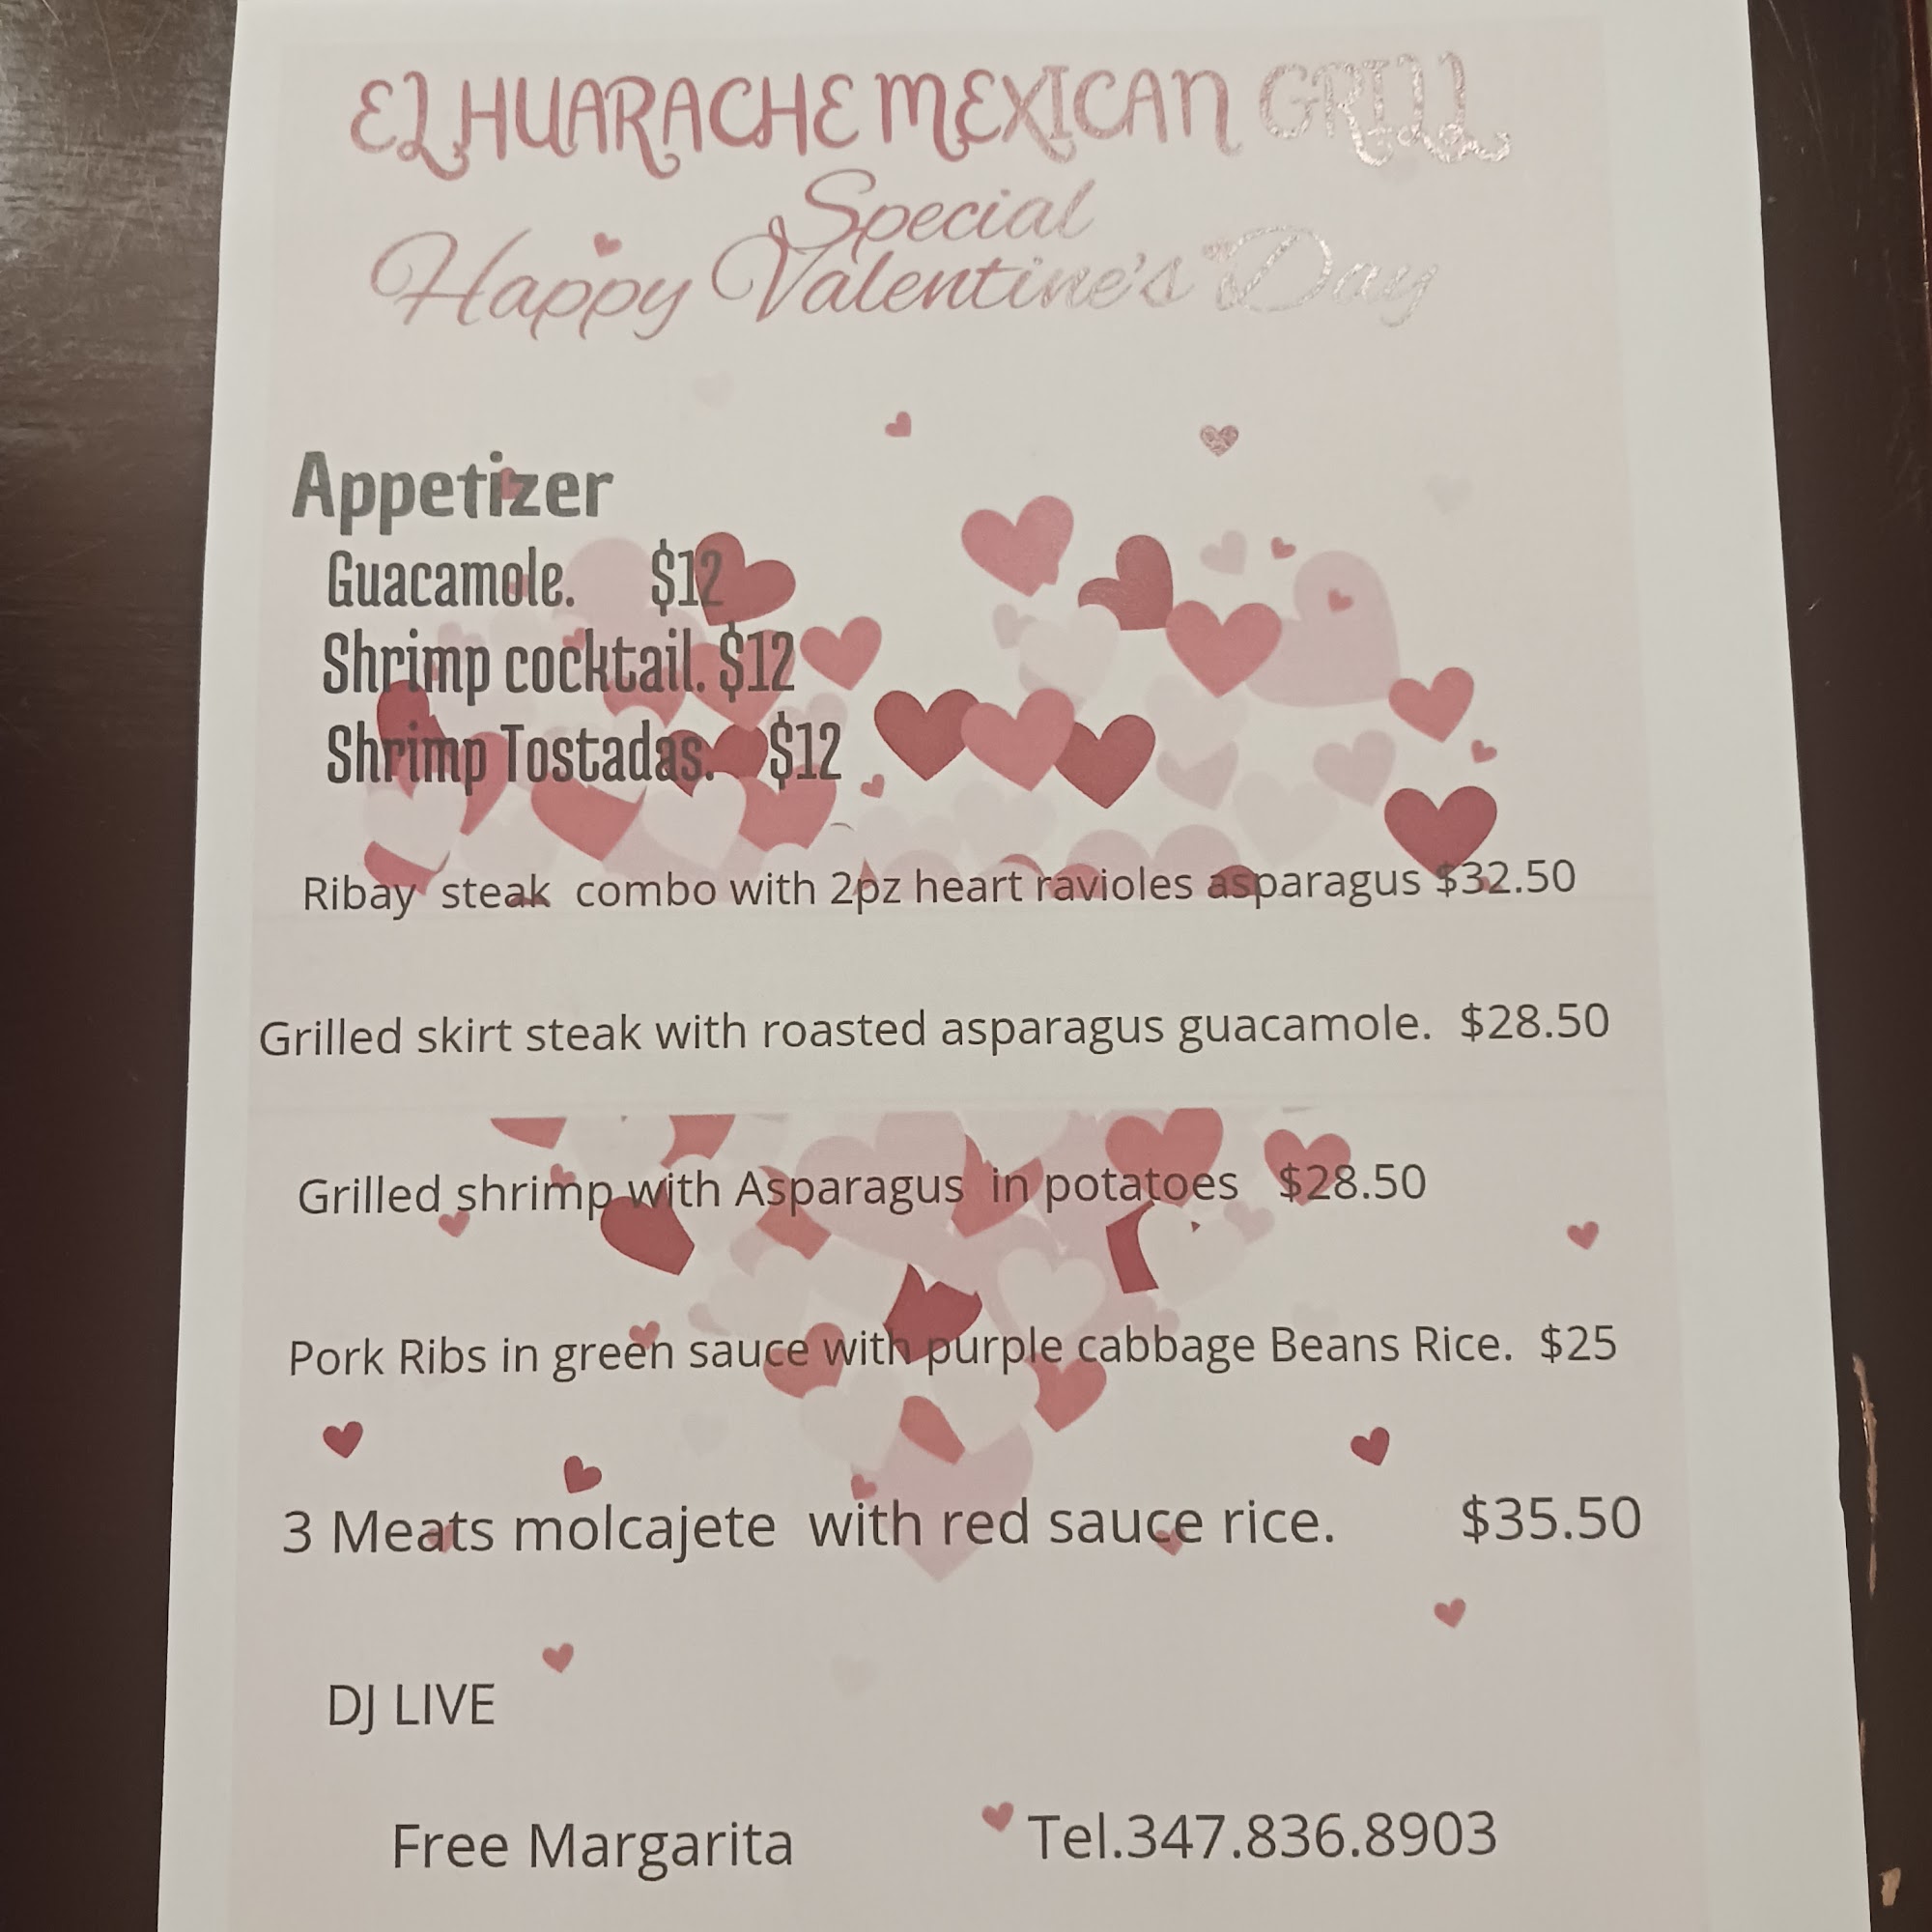 EL HUARACHE MEXICAN GRILL
Special
Happy Valentine's Day
Appetizer
Guacamole. $12
Shrimp cocktail. $12
Shrimp Tostadas. $12
Ribay steak combo with 2pz heart ravioles asparagus $32.50
Grilled skirt steak with roasted asparagus guacamole. $28.50
Grilled shrimp with Asparagus in potatoes $28.50
Pork Ribs in green sauce with purple cabbage Beans Rice. $25
3 Meats molcajete with red sauce rice. $35.50
DJ LIVE
Free Margarita Tel.347.836.8903